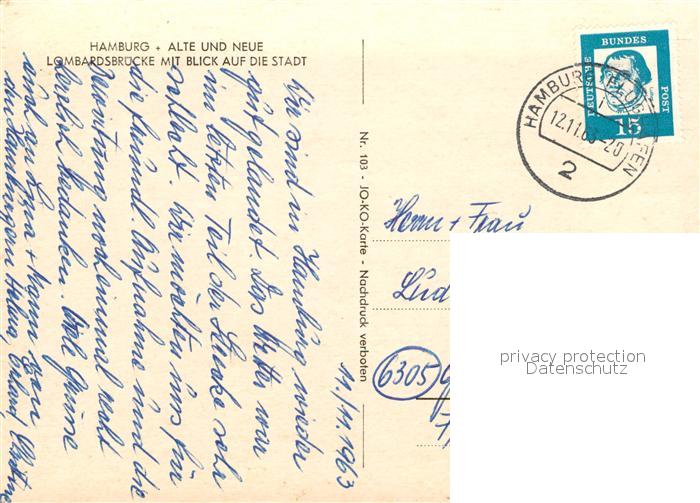 HAMBURG + ALTE UND NEUE
LOMBARDSBRÜCKE MIT BLICK AUF DIE STADT
11./11. 1963
Wir sind in Hamburg wieder
gut gelandet. Das Wetter war
im letzten Teil der Strecke sehr
Wir möchten uns für
die freundl. Aufnahme und die
Bewirtung noch einmal recht
herzlich bedanken. Viele Grüsse
auch an
aus Hamburg von
Nr. 103 - JO-KO-Karte - Nachdruck verboten
DEUTSCHE BUNDES POST
15
HAMBURG FLUGHAFEN
12.11.63-20
2
Herrn + Frau
Lud
6305
privacy protection
Datenschutz